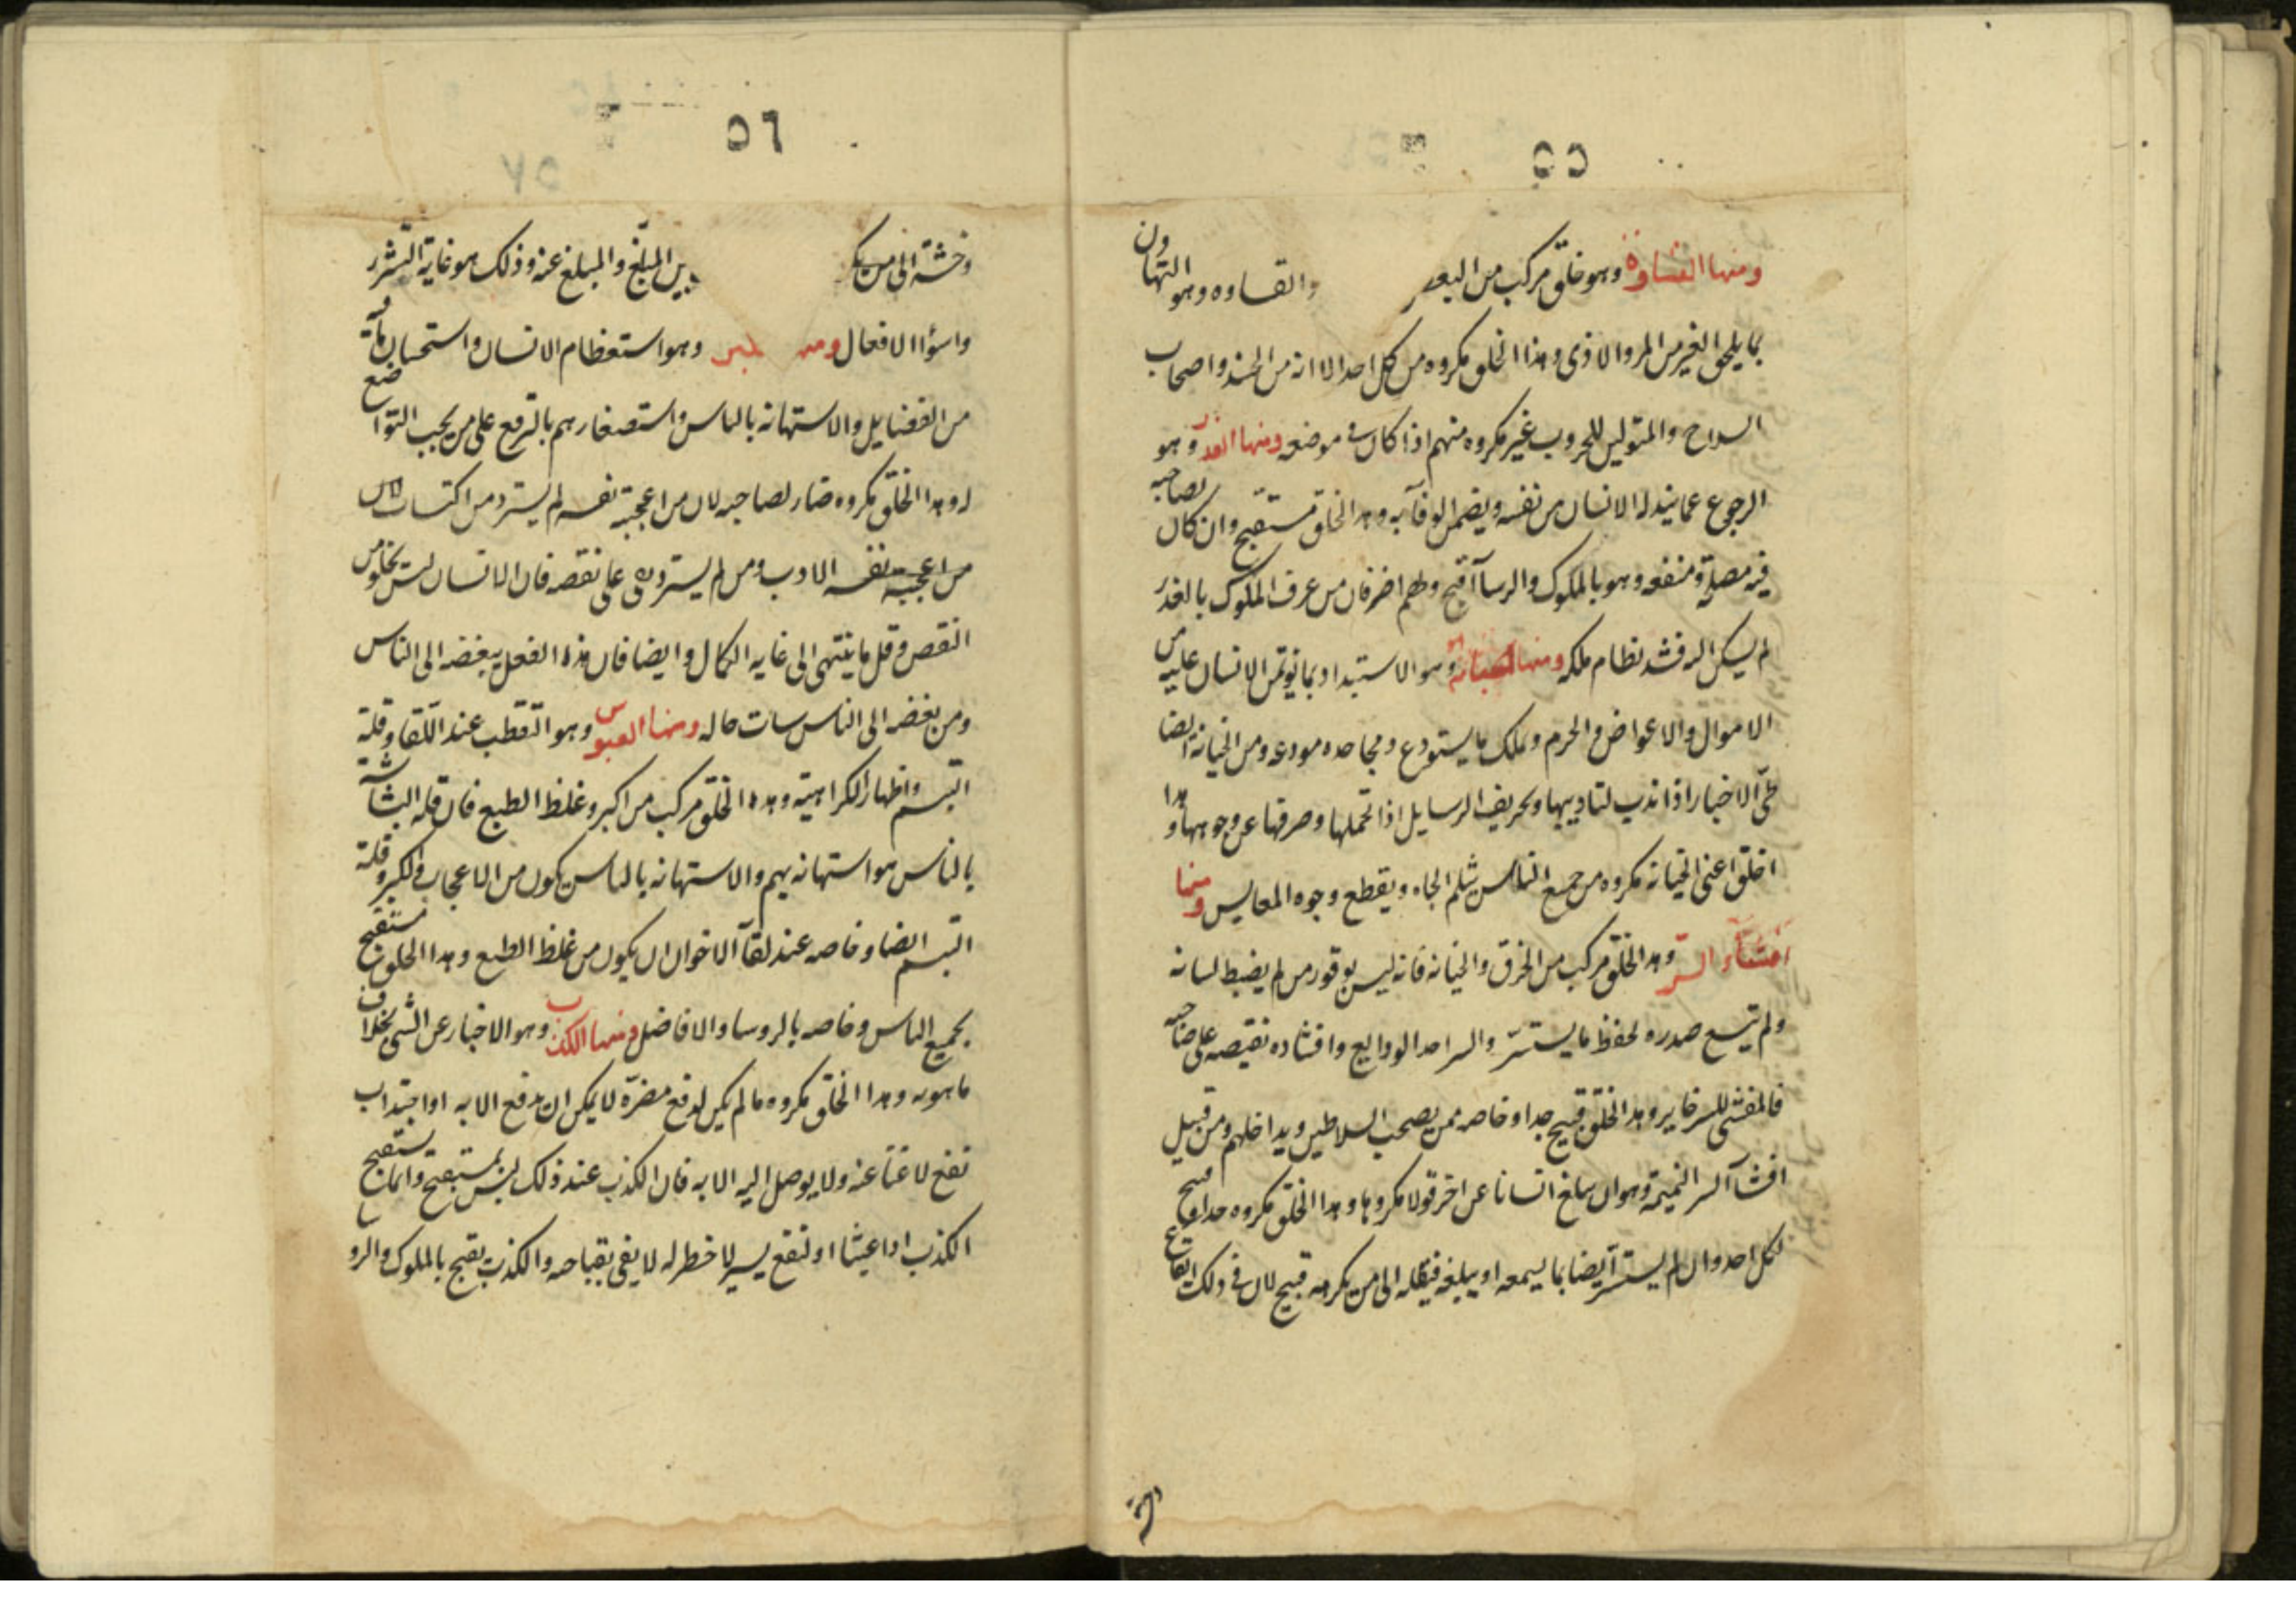 ٥٥
ومنها القساوة وهو خلق مركب من البغض والقساوه وهو التهاون
بما يلحق الغير من الم والاذى وهذا الخلق مكروه من كل احد الا انه من الجند واصحاب
السلاح والمتولين للحروب غير مكروه منهم اذا كان في موضعه ومنها الغدر وهو
الرجوع عما يبذله الانسان من نفسه ويضمن الوفآ به وهذا الخلق مستقبح وان كان لصاحبه
فيه مصلحة ومنفعه وهو بالملوك والرسآ اقبح ولهم اضر فان من عرف من الملوك بالغدر
لم يسكن اليه فسد نظام ملكه ومنها الخيانة وهو الاستبداد بما يؤتمن الانسان عليه من
الاموال والاعراض والحرم وتملك ما يستودع ومجاحده مودعه ومن الخيانة ايضا
طي الاخبار اذا ندب لتاديبها وتحريف الرسايل اذا تحملها وصرفها عن وجوهها وهذا
الخلق اعنى الخيانه مكروه من جميع الناس يثلم الجاه ويقطع وجوه المعايش ومنها
افشآء السر وهذا الخلق مركب من الخرق والخيانه فانه ليس بوقور من لم يضبط لسانه
ولم يتسع صدره لحفظ ما يستسر والسر احد الودايع وافشاده نقيصه على صاحبه
فالمفشى للسر خاير وهذا الخلق قبيح جدا وخاصه ممن يصحب السلاطين ويداخلهم ومن قبيل
افشآ السر النميمة وهو ان يبلغ انسانا عن اخر قولا مكروها وهذا الخلق مكروه جدا وقبيح
لكل احد وان لم يستسر ايضا بما يسمعه او يبلغه فينقله الى من يكرهه قبيح لان في ذلك ايقاع
٥٦
وحشة الى من يكر بين المبلّغ والمبلغ عنه وذلك هو غاية التشرر
واسؤا الافعال ومنها الكبر وهو استعظام الانسان واستحسان ما فيه
من الفضايل والاستهانه بالناس واستصغارهم بالترفع على من يجب التواضع
له وهذا الخلق مكروه ضار لصاحبه لان من اعجبته نفسه لم يستزد من اكتساب
من اعجبته نفسه الادب ومن لم يستزد بقى على نقصه فان الانسان ليس يخلو من
النقص وقل ما ينتهى الى غايه الكمال وايضا فان هذا الفعل يبغضه الى الناس
ومن بغضه الى الناس سات حاله ومنها العبوس وهو التقطب عند اللقا وقلة
التبسم واظهار الكراهية وهذا الخلق مركب من الكبر وغلظ الطبع فان قله البشاشة
بالناس هو استهانه بهم والاستهانه بالناس يكون من الاعجاب والكبر وقلة
التبسم ايضا وخاصه عند لقآ الاخوان ان يكون من غلظ الطبع وهذا الخلق مستقبح
بجميع الناس وخاصه بالروسا والافاضل ومنها الكذب وهو الاخبار عن الشى بخلاف
ما هو به وهذا الخلق مكروه ما لم يكن لدفع مضرة لا يمكن ان تدفع الا به او اجتذاب
نفع لا غنا عنه ولا يوصل اليه الا به فان الكذب عند ذلك ليس بمستقبح وانما يستقبح
الكذب اذا عبثا او لنفع يسير لا خطر له لا يفى بقباحه والكذب يقبح بالملوك والروسا